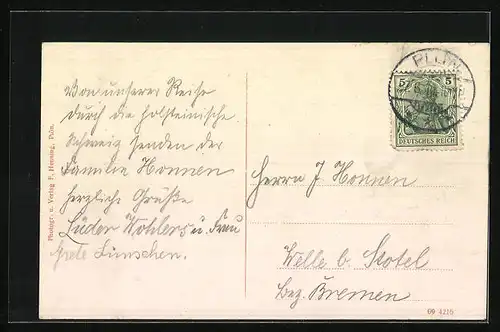 Von unserer Reise
durch die holsteinische
Schweiz senden der
Familie Honnen
herzliche Grüße
Lüder Wohlers u. Frau
Grete Lünschen.
Photogr. u. Verlag F. Henning, Plön.
PLÖN
5 5
DEUTSCHES REICH
Herrn J Honnen
Welle b Stotel
Bez. Bremen
09 4216